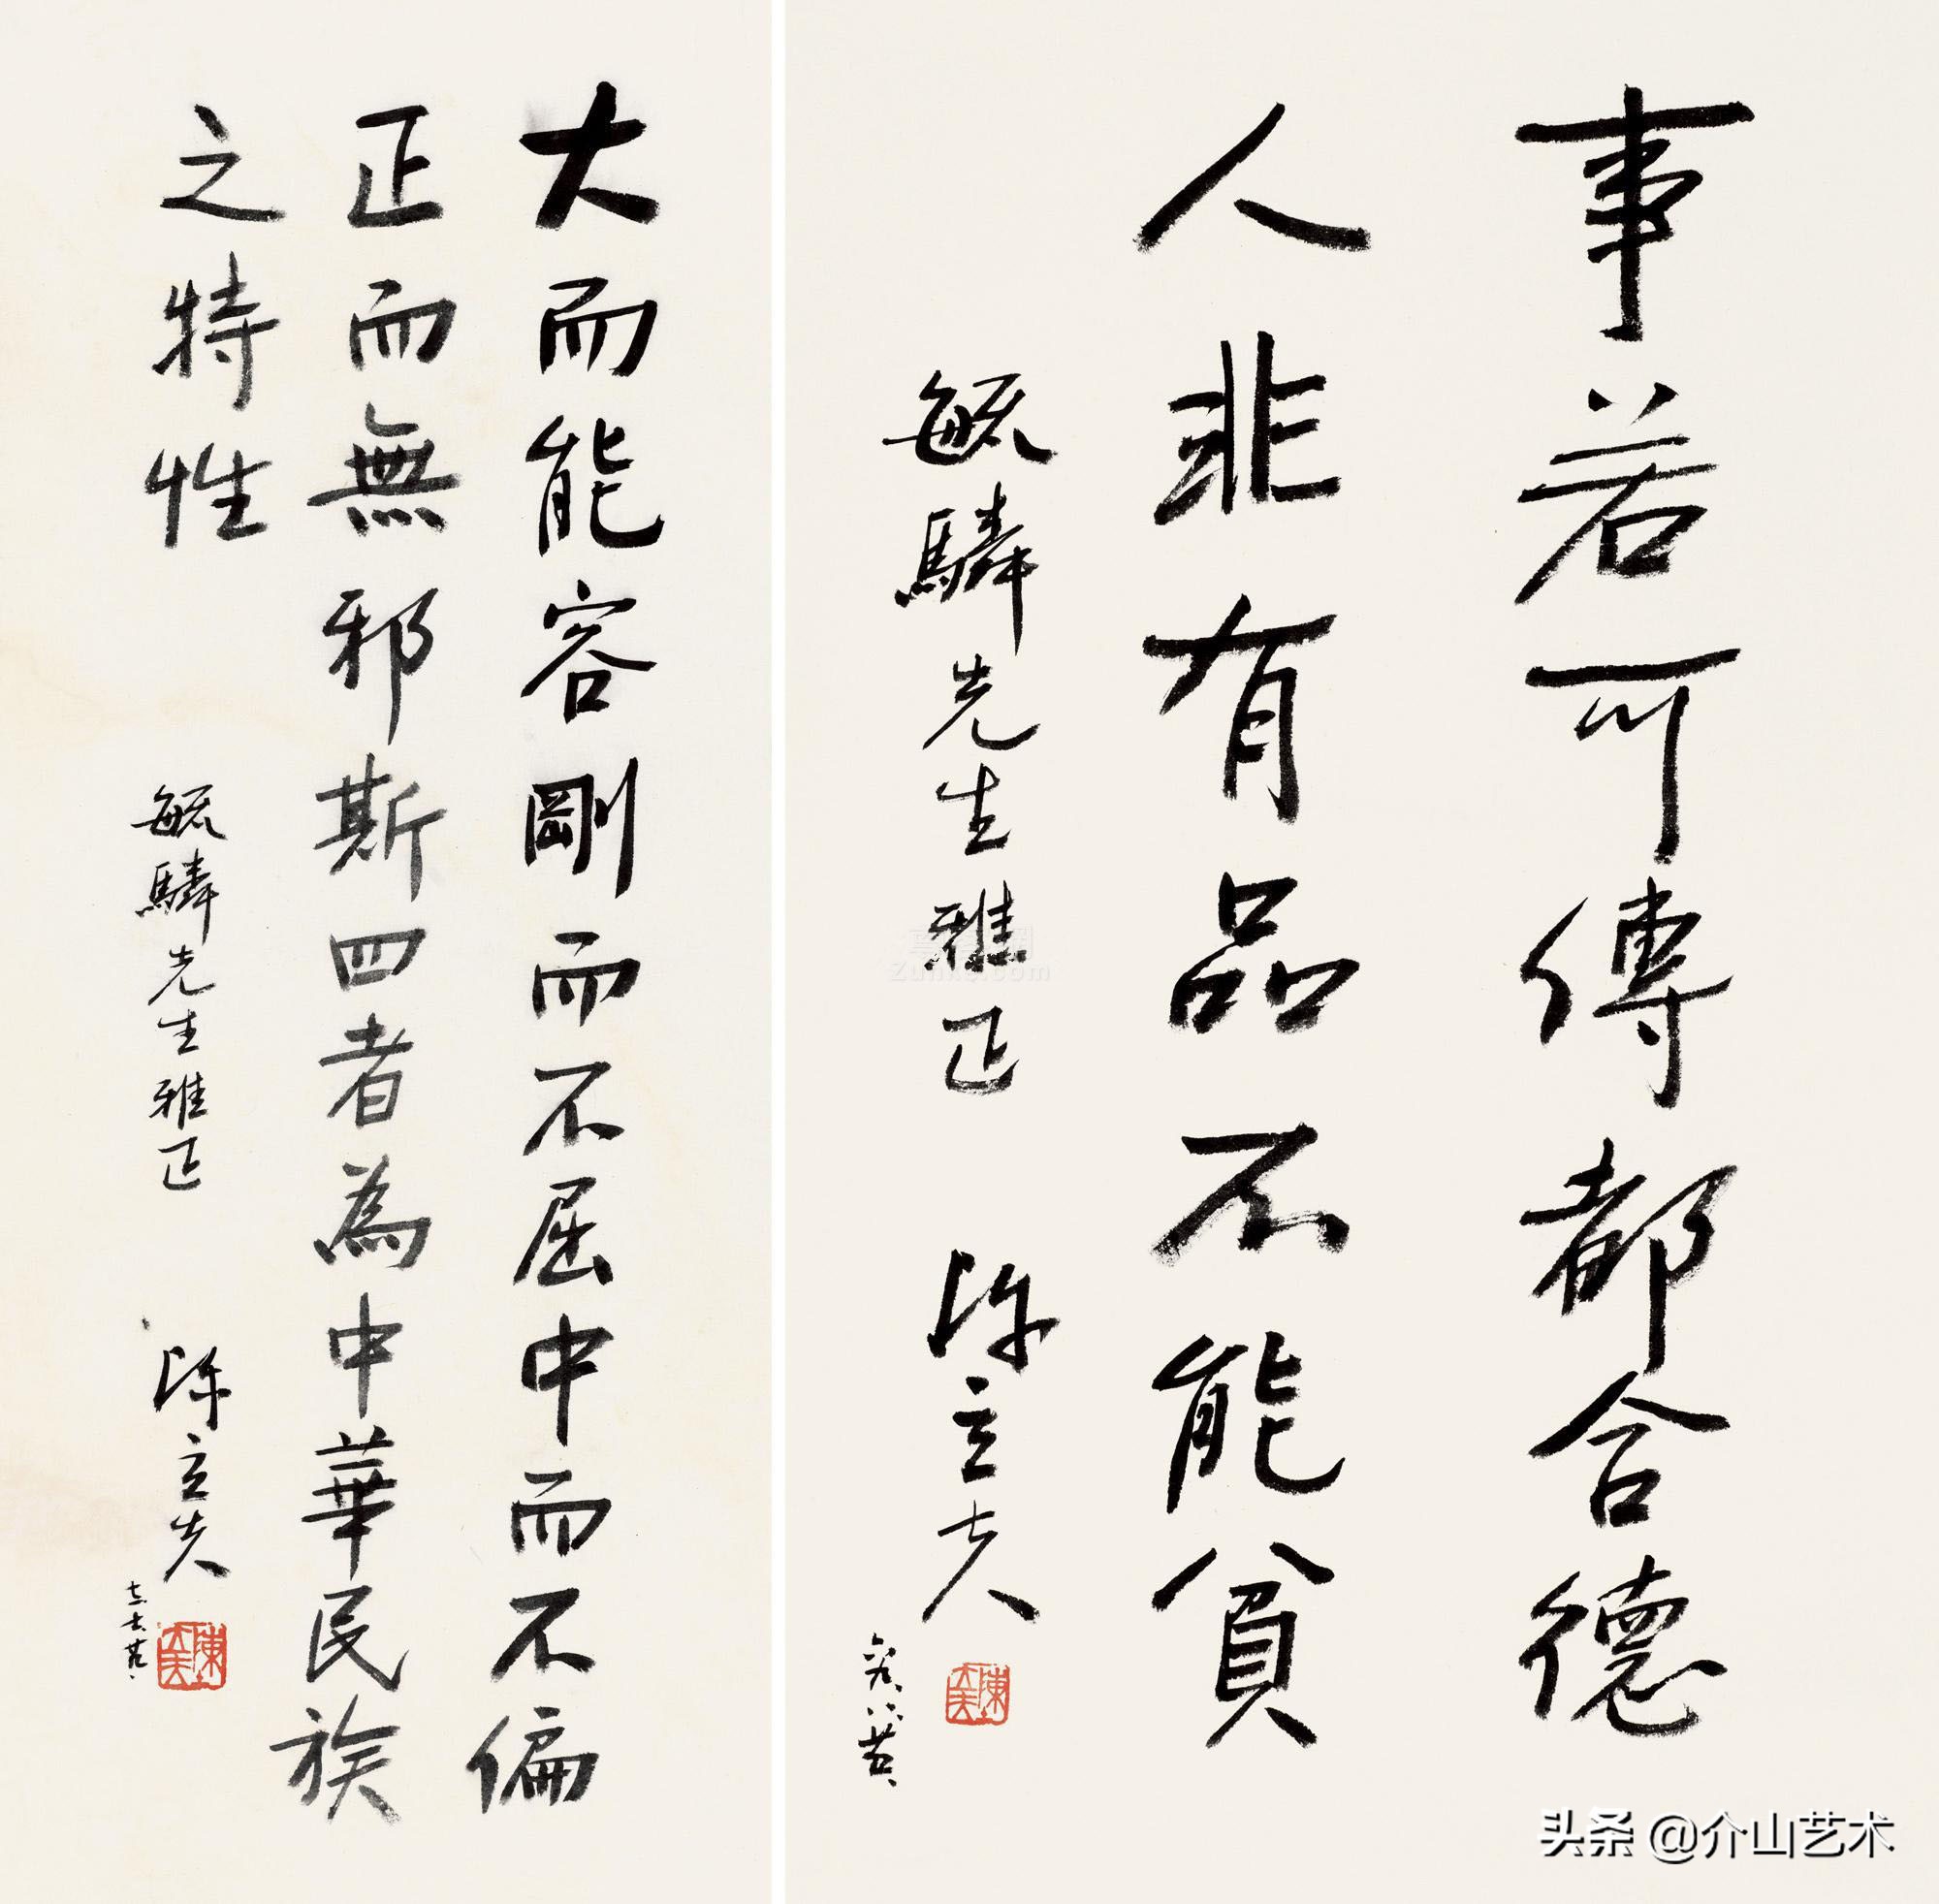 事若可傳都合德
人非有品不能貧
毓驎先生雅正
陳立夫
大而能容剛而不屈中而不偏
正而無邪斯四者為中華民族
之特性
毓驎先生雅正
陳立夫
头条 @介山艺术